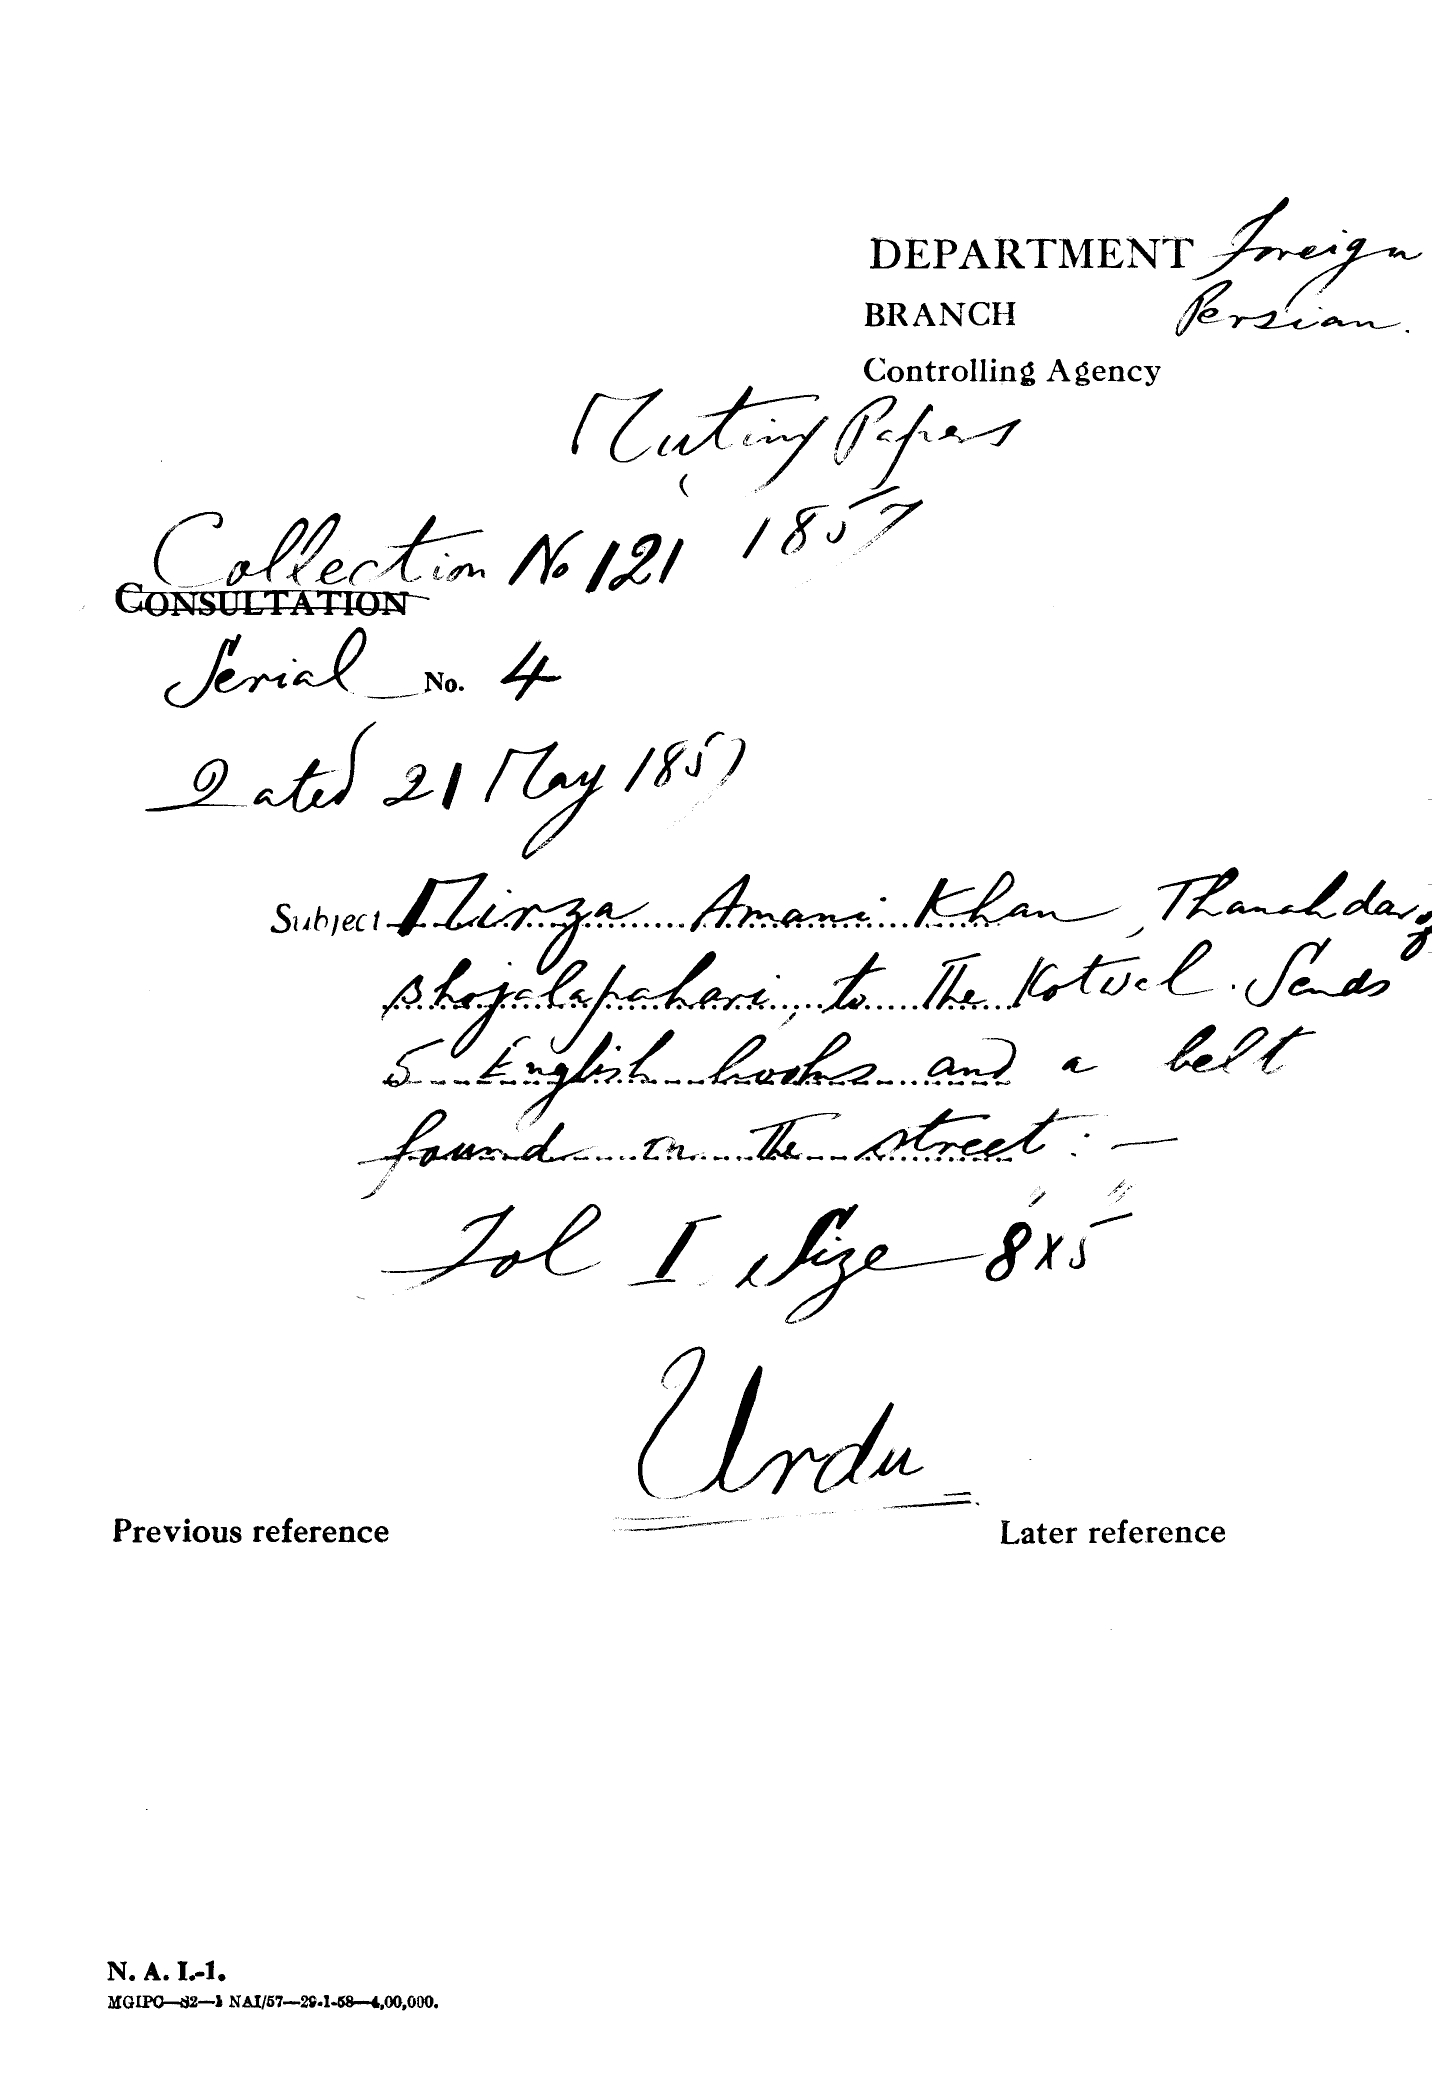 DEPARTMENT Foreign
BRANCH Persian.
Controlling Agency
Mutiny Papers
1857
Collection No 121
CONSULTATION
Serial No. 4
Dated 21 May 1857
Subject Mirza Amani Khan, Thanahdar of
Bhojalapahari, to the Kotwal. Sends
5 English books and a belt
found on the street:—
Fol I Size 8"x5"
Urdu
Previous reference Later reference
N. A. I.-1.
MGIPC—82—1 NAI/57—29-1-58—4,00,000.